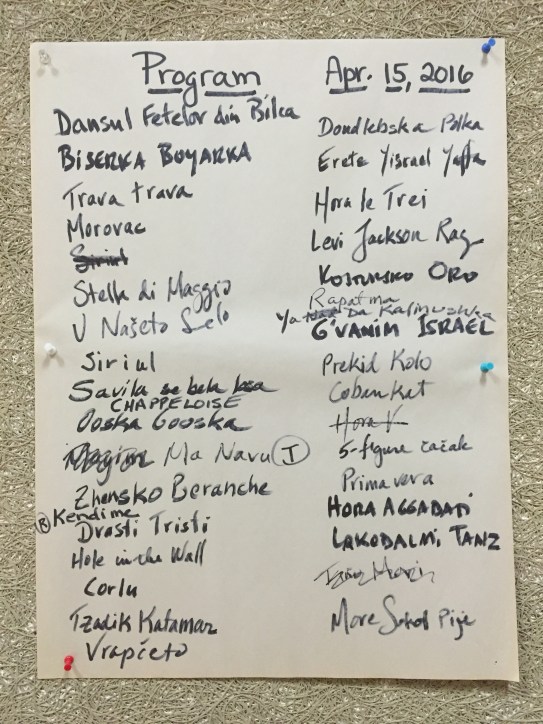 Program
Apr. 15, 2016
Dansul Fetelor din Bilca
BISERKA BOYARKA
Trava trava
Moravac
Siriul
Stelle di Maggio
U Našeto Selo
Siriul
Savila se bela loza
CHAPPELOISE
Ooska Gooska
Ma Navu I
Zhensko Beranche
Kendime
Drasti Tristi
Hole in the Wall
Corlu
Tzadik Katamar
Vrapčeto
Doudlebska Polka
Eretz Yisrael Yaffa
Hora la Trei
Levi Jackson Rag
KOSTURSKO ORO
Rapatma
Ya Da Kalinushka
G'VANIM ISRAEL
Prekid Kolo
Cobankat
Hora V
5-figure čačak
Primavera
HORA AGGADATI
LAKODALMI TANZ
More Sokol Pije